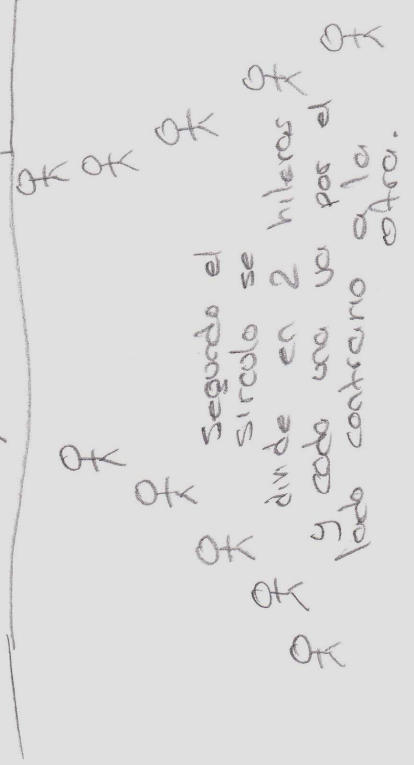 Segundo el
sírculo se
divide en 2 hileras
y cada una va por el
lado contrario a la
otra.